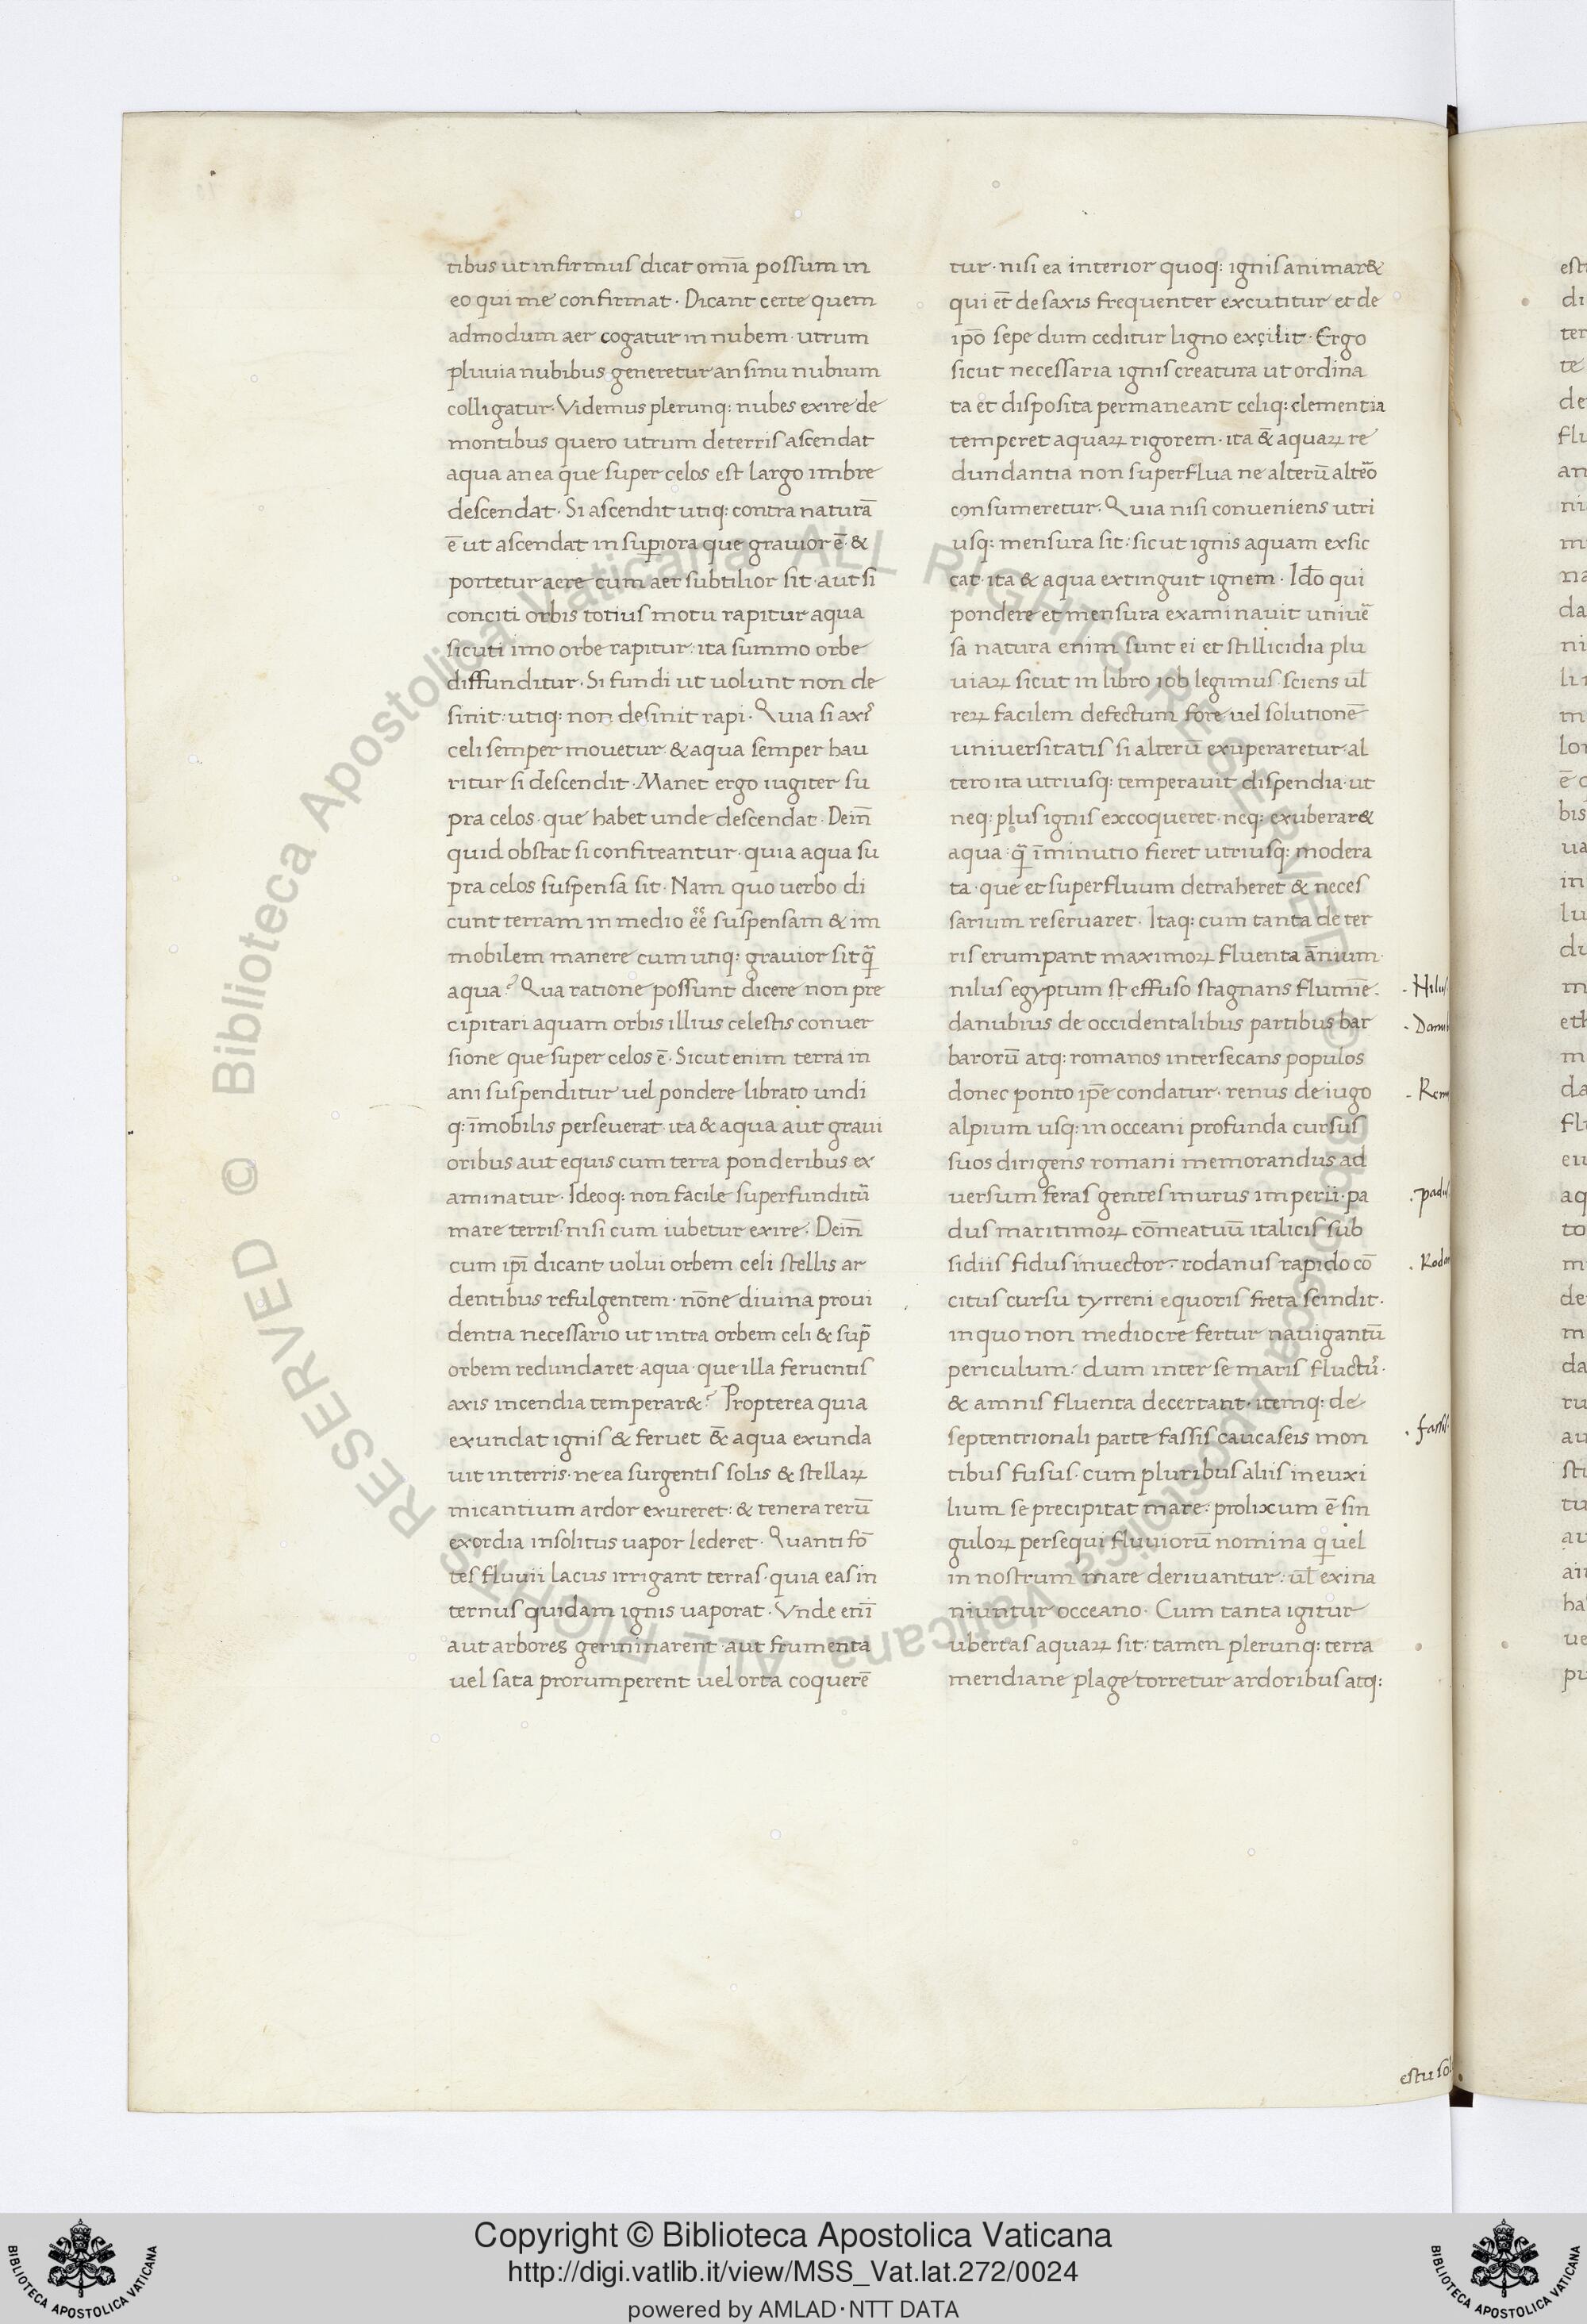 tibus ut infirmus dicat om̄ia possum in
eo qui me confirmat · Dicant certe quem
admodum aer cogatur in nubem · utrum
pluuia nubibus generetur an sinu nubium
colligatur · Videmus plerunq: nubes exire de
montibus quero utrum de terris ascendat
aqua an ea que super celos est largo imbre
descendat · Si ascendit utiq: contra naturā
ē ut ascendat in supiora que grauior ē · &
portetur aere cum aer subtilior sit · aut si
conciti orbis totius motu rapitur aqua
sicuti imo orbe rapitur · ita summo orbe
diffunditur · Si fundi ut uolunt non de
sinit · utiq: non desinit rapi · Quia si axis
celi semper mouetur · & aqua semper hau
ritur si descendit · Manet ergo iugiter su
pra celos · que habet unde descendat · Dein̄
quid obstat si confiteantur · quia aqua su
pra celos suspensa sit · Nam quo uerbo di
cunt terram in medio eē suspensam & im
mobilem manere cum utiq: grauior sit q̄
aqua? Qua ratione possunt dicere non pre
cipitari aquam orbis illius celestis conuer
sione que super celos ē · Sicut enim terra in
ani suspenditur uel pondere librato undi
q: īmobilis perseuerat · ita & aqua aut graui
oribus aut equis cum terra ponderibus ex
aminatur · Ideoq: non facile superfunditur
mare terris · nisi cum iubetur exire · Dein̄
cum ip̄i dicant uolui orbem celi stellis ar
dentibus refulgentem · nōne diuina proui
dentia necessario ut intra orbem celi & sup̄
orbem redundaret aqua · que illa feruentis
axis incendia temperar&? Propterea quia
exundat ignis & feruet &̄ aqua exunda
uit in terris · ne ea surgentis solis & stellaꝝ
micantium ardor exureret : & tenera rerū
exordia insolitus uapor lederet · Quanti fō
tes fluuii lacus irrigant terras · quia eas in
ternus quidam ignis uaporat · Vnde enī
aut arbores germinarent · aut frumenta
uel sata prorumperent uel orta coquerē
tur · nisi ea interior quoq: ignis animar&
qui et̄ de saxis frequenter excutitur et de
ip̄o sepe dum ceditur ligno exçilit · Ergo
sicut necessaria ignis creatura ut ordina
ta et disposita permaneant celiq: clementia
temperet aquaꝝ rigorem · ita &̄ aquaꝝ re
dundantia non superflua ne alterū altēo
consumeretur · Quia nisi conueniens utri
usq: mensura sit · sicut ignis aquam exsic
cat · ita & aqua extinguit ignem · Ido̅ qui
pondere et mensura examinauit uniuē
sa natura enim sunt ei et stillicidia plu
uiaꝝ sicut in libro iob legimus · sciens ul̄
reꝝ facilem defectum fore uel solutionē
uniuersitatis si alterū exuperaretur · al
tero ita utriusq: temperauit dispendia · ut
neq: plus ignis excoqueret · neq: exuberar&
aqua · q̄ īminutio fieret utriusq: modera
ta · que et superfluum detraheret & neces
sarium reseruaret · Itaq: cum tanta de ter
ris erumpant maximoꝝ fluenta ānium ·
nilus egyptum st effuso stagnans flumīe ·
danubius de occidentalibus partibus bar
barorū atq: romanos intersecans populos
donec ponto ip̄e condatur · renus de iugo
alpium usq: in occeani profunda cursus
suos dirigens romani memorandus ad
uersum feras gentes murus imperii · pa
dus maritimoꝝ cōmeatuū italicis sub
sidiis fidus inuector · rodanus rapido cō
citus cursu tyrreni equoris freta scindit ·
in quo non mediocre fertur nauigantū
periculum : dum inter se maris fluctus ·
& amnis fluenta decertant · itemq: de
septentrionali parte fassis caucaseis mon
tibus fusus · cum pluribus aliis in euxi
lium se precipitat mare · prolixum ē sin
guloꝝ persequi fluuiorū nomina q uel
in nostrum mare deriuantur : ul̄ exina
niuntur occeano · Cum tanta igitur
ubertas aquaꝝ sit · tamen plerunq: terra
meridiane plage torretur ardoribus atq:
· Hilus
· Danub
· Renu
· padus
· Rodan
· fassis
estu sol
Copyright © Biblioteca Apostolica Vaticana
http://digi.vatlib.it/view/MSS_Vat.lat.272/0024
powered by AMLAD·NTT DATA
BIBLIOTECA APOSTOLICA VATICANA
BIBLIOTECA APOSTOLICA VATICANA
© Biblioteca Apostolica Vaticana ALL RIGHTS RESERVED © Biblioteca Apostolica Vaticana ALL RIGHTS RESERVED